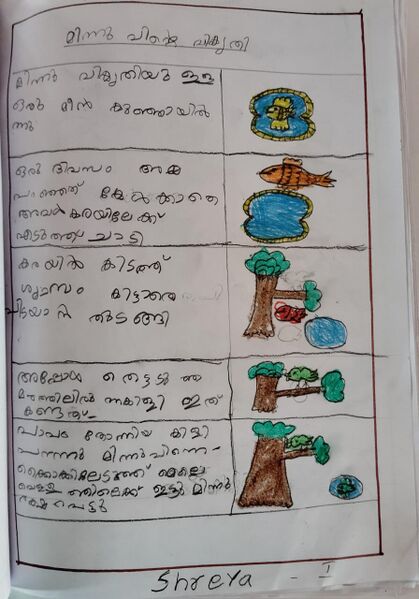 മിന്നു വിന്റെ വികൃതി
മിന്നു വികൃതിയു ള്ള
ഒരു മീൻ കുഞ്ഞായിരു
ന്നു
ഒരു ദിവസം അമ്മ
പറഞ്ഞത് കേൾക്കാതെ
അവൾ കരയിലേക്ക്
എടുത്ത് ചാടി
കരയിൽ കിടത്ത്
ശ്വാസം കിട്ടാതെ
പിടയാനി തുടങ്ങി
അപ്പോൾ തൊട്ടടു ത്ത
മരത്തിലിരു ന്നകിളി ഇത്
കണ്ടു
പാപം തോന്നിയ കിളി
പറന്നു മിന്നുവിനെ
കൊക്കിലെടുത്ത് മെല്ലെ
വെള്ള ത്തിലെക്ക് ഇട്ടു മിന്നു
രക്ഷ പെട്ടു
Shreya - I